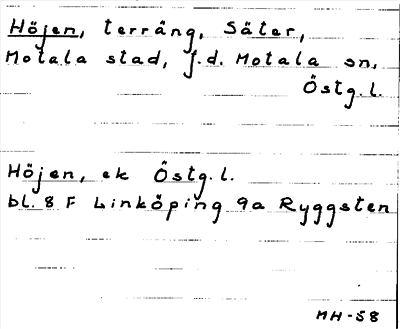 Höjen, terräng, Säter,
Motala stad, f.d. Motala sn,
Östg.l.
Höjen, ek Östg.l.
bl. 8 F Linköping 9a Ryggsten
MH-58